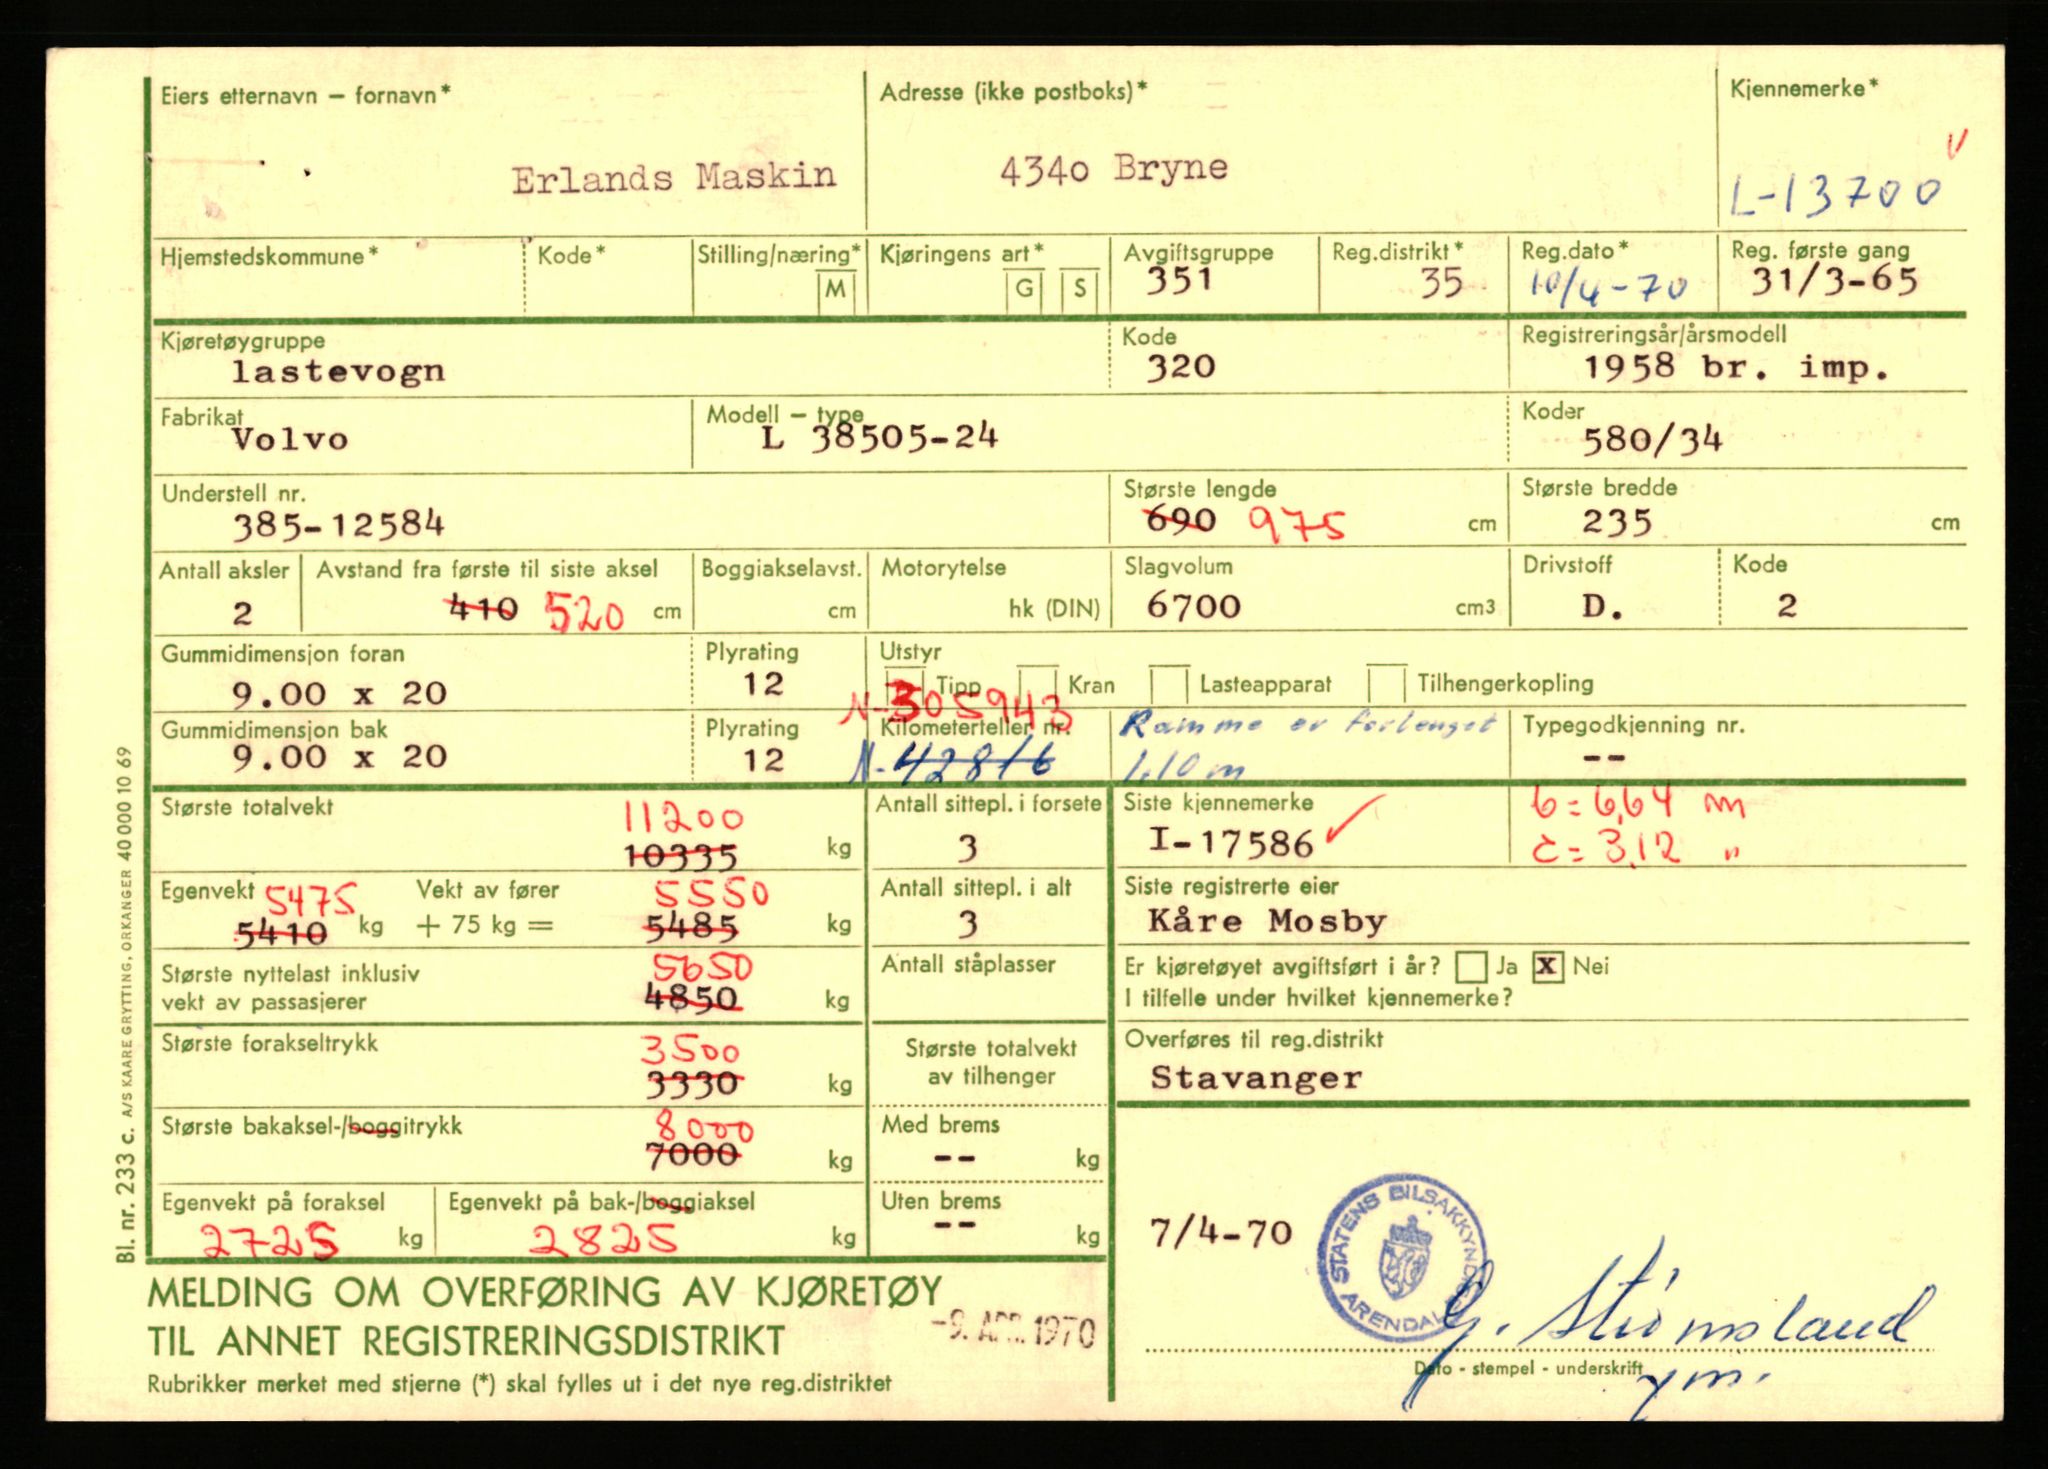 Eiers etternavn – fornavn*
Erlands Maskin
Adresse (ikke postboks)*
4340 Bryne
Kjennemerke*
L-13700
Hjemstedskommune*
Kode*
Stilling/næring*
M
Kjøringens art*
G S
Avgiftsgruppe
351
Reg.distrikt*
35
Reg.dato*
10/4-70
Reg. første gang
31/3-65
Kjøretøygruppe
lastevogn
Kode
320
Registreringsår/årsmodell
1958 br. imp.
Fabrikat
Volvo
Modell – type
L 38505-24
Koder
580/34
Understell nr.
385-12584
Største lengde
690 975 cm
Største bredde
235 cm
Antall aksler
2
Avstand fra første til siste aksel
410 520 cm
Boggiakselavst.
cm
Motorytelse
hk (DIN)
Slagvolum
6700 cm3
Drivstoff
D.
Kode
2
Gummidimensjon foran
9.00 x 20
Plyrating
12
Utstyr
Tipp Kran Lasteapparat Tilhengerkopling
Gummidimensjon bak
9.00 x 20
Plyrating
12
N-305943
Kilometerteller nr.
N-42816
Ramme er forlenget
1.10 m
Typegodkjenning nr.
--
Største totalvekt
11200
10335 kg
Antall sittepl. i forsete
3
Siste kjennemerke
I-17586
b = 6,64 m
c = 3,12 "
Egenvekt
5475
5410 kg
Vekt av fører
+ 75 kg =
5550
5485 kg
Antall sittepl. i alt
3
Siste registrerte eier
Kåre Mosby
Største nyttelast inklusiv
vekt av passasjerer
5650
4850 kg
Antall ståplasser
Er kjøretøyet avgiftsført i år? Ja x Nei
I tilfelle under hvilket kjennemerke?
Største forakseltrykk
3500
3330 kg
Største totalvekt
av tilhenger
Overføres til reg.distrikt
Stavanger
Største bakaksel-/boggitrykk
8000
7000 kg
Med brems
-- kg
Egenvekt på foraksel
2725 kg
Egenvekt på bak-/boggiaksel
2825 kg
Uten brems
-- kg
7/4-70
STATENS BILSAKKYNDIGE
ARENDAL
G. Strømsland
Dato - stempel - underskrift
MELDING OM OVERFØRING AV KJØRETØY
TIL ANNET REGISTRERINGSDISTRIKT
-9. APR. 1970
Rubrikker merket med stjerne (*) skal fylles ut i det nye reg.distriktet
Bl. nr. 233 c. A/S KAARE GRYTTING, ORKANGER 40 000 10 69